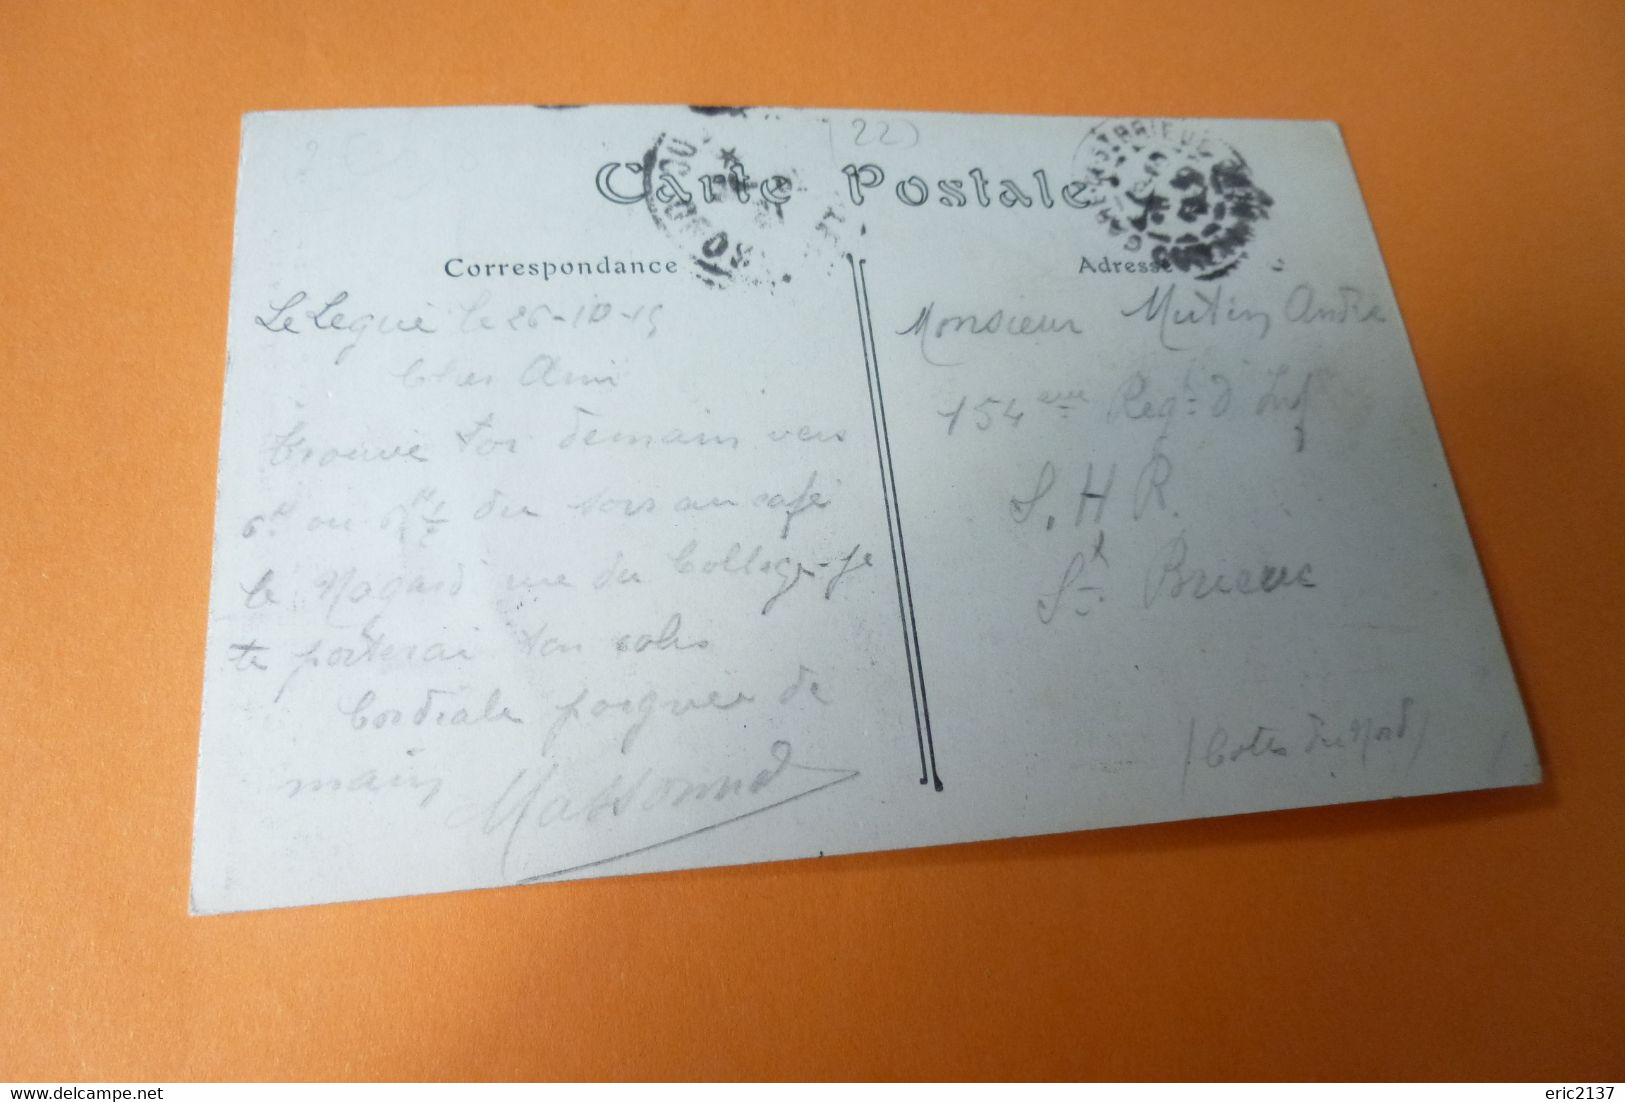 (22)
Carte Postale
Correspondance
Adresse
Le Legué le 26-10-15
Cher Ami
trouve toi demain vers
6h ou 6h 1/2 du soir au café
le Nagard rue du College. Je
te porterai ton colis
Cordiale poignée de
main
Massonnd
Monsieur Mutin André
154eme Regt d'Inf
S. H R.
St Brieuc
(Cotes du Nord)
www.delcampe.net
eric2137